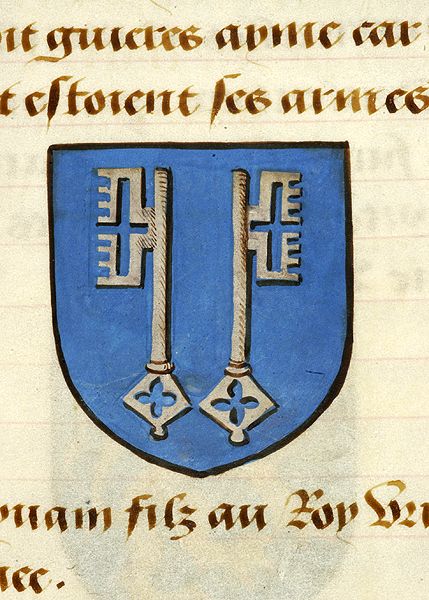 nt giueres ayme car
t estoient ses armes
yuain filz au Roy Vri
nec.